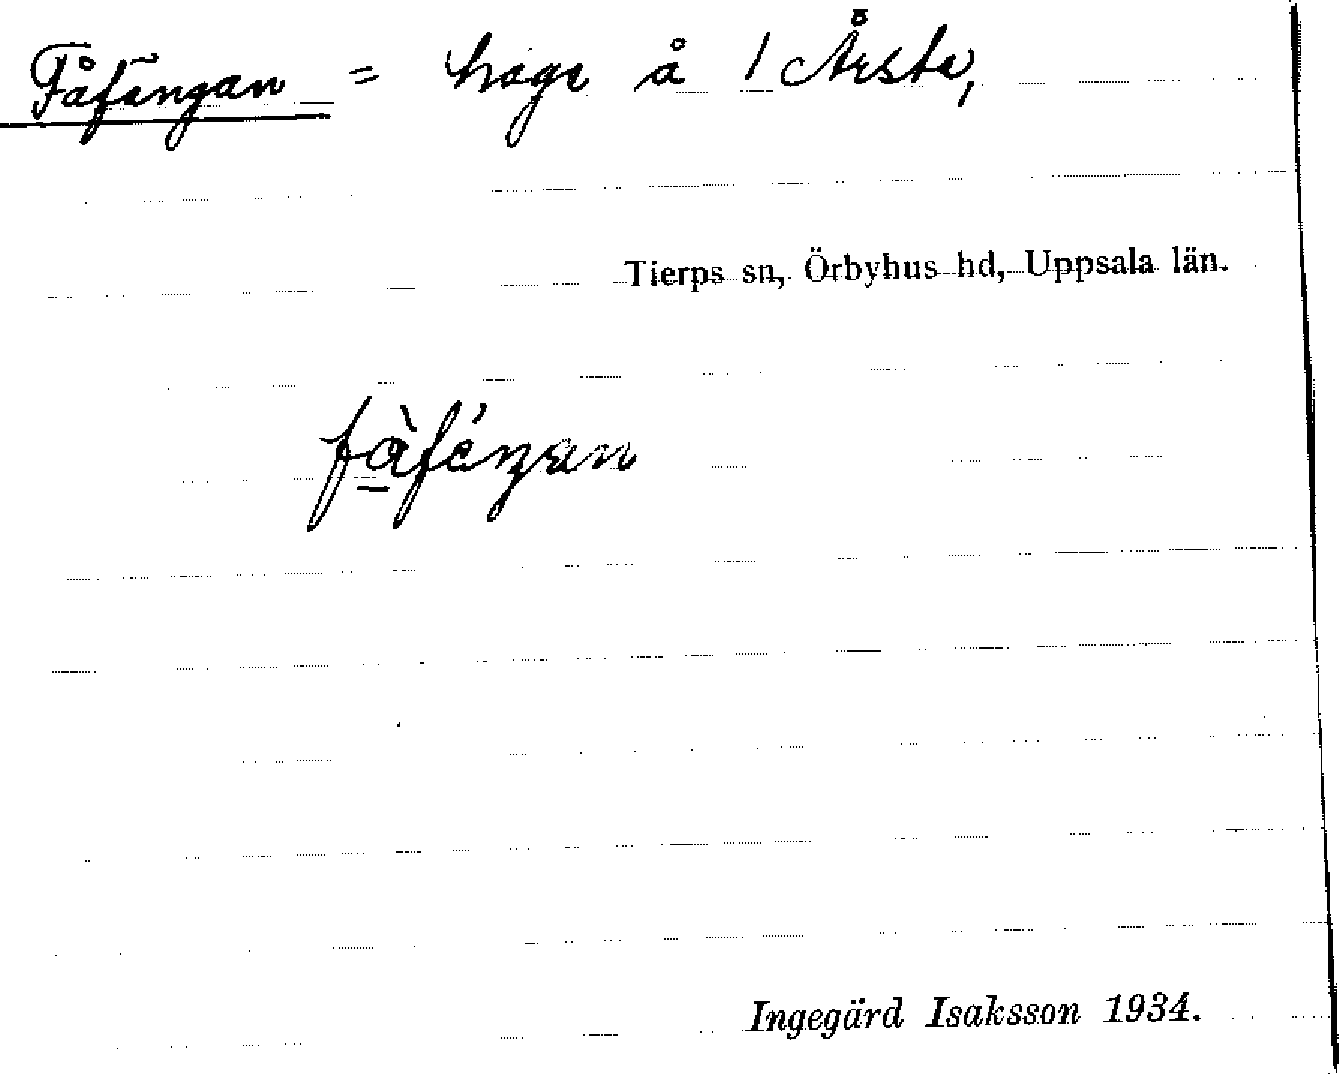 Fåfängan = hage å 1 Årsta,
Tierps sn, Örbyhus hd, Uppsala län.
Ingegärd Isaksson 1934.